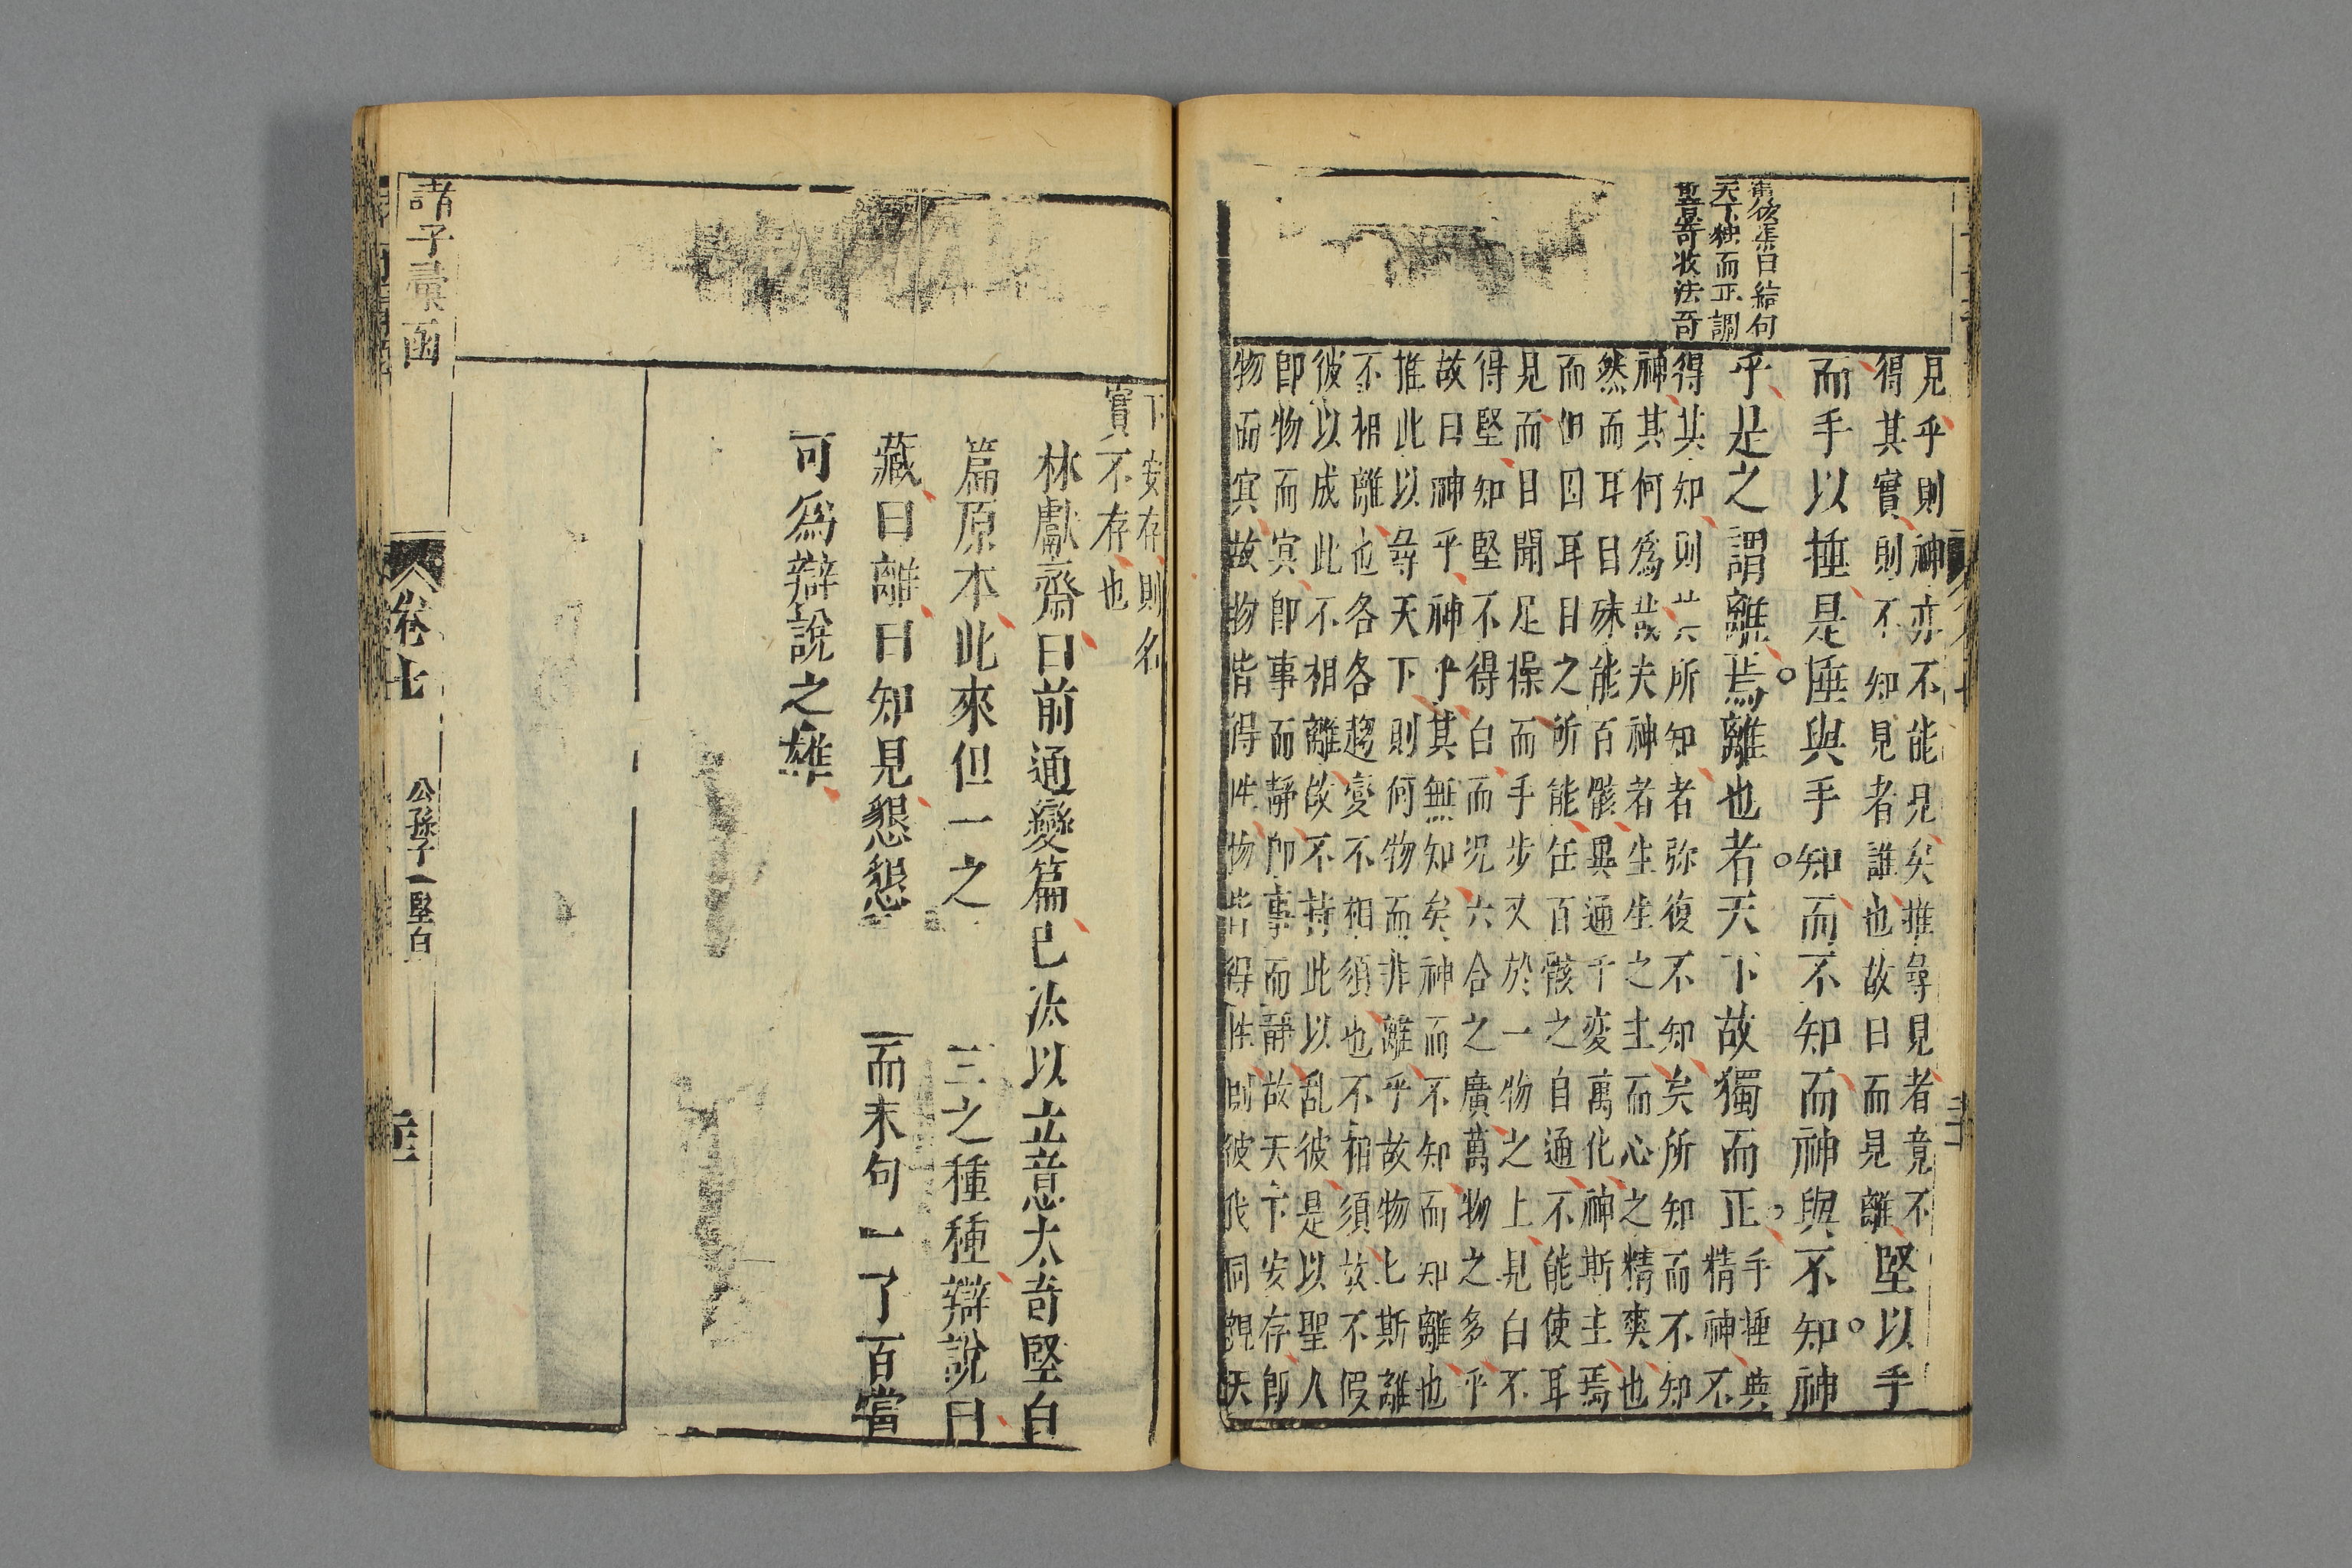 曰結句
天下獨而正調
奇收法奇
見乎則神亦不能見矣推尋見者竟不
得其實則不知見者誰也故曰而見離
堅以手
而手以捶是捶與手知而不知而神與不知神
乎是之謂離焉離也者天下故獨而正
手捶與
精神不
得其知則其所知者弥復不知矣所知而不知
神其何為哉夫神者生生之主而心之精爽也
然而耳目殊能百骸異通千変萬化神斯主焉
而但因耳目之所能任百骸之自通不能使耳
見而目聞足操而手步又於一物之上見白不
得堅知堅不得白而况六合之廣萬物之多乎
故曰神乎神乎其無知矣神而不知而知離也
推此以尋天下則何物而非離乎故物物斯離
不相離也各各趨變不相須也不相須故不假
彼以成此不相離故不持此以乱彼是以聖人
即物而冥即事而靜即事而靜故天下安存即
物而冥故物皆得性物皆得性則彼我同親天
下安存則名
實不存也
林獻齋曰前通變篇已法以立意太奇堅白
篇原本此來但一之
三之種種辯說曰
藏曰離曰知見懇懇
而末句一了百當
可為辯說之雄
諸子彙函
卷七
公孫子
堅白